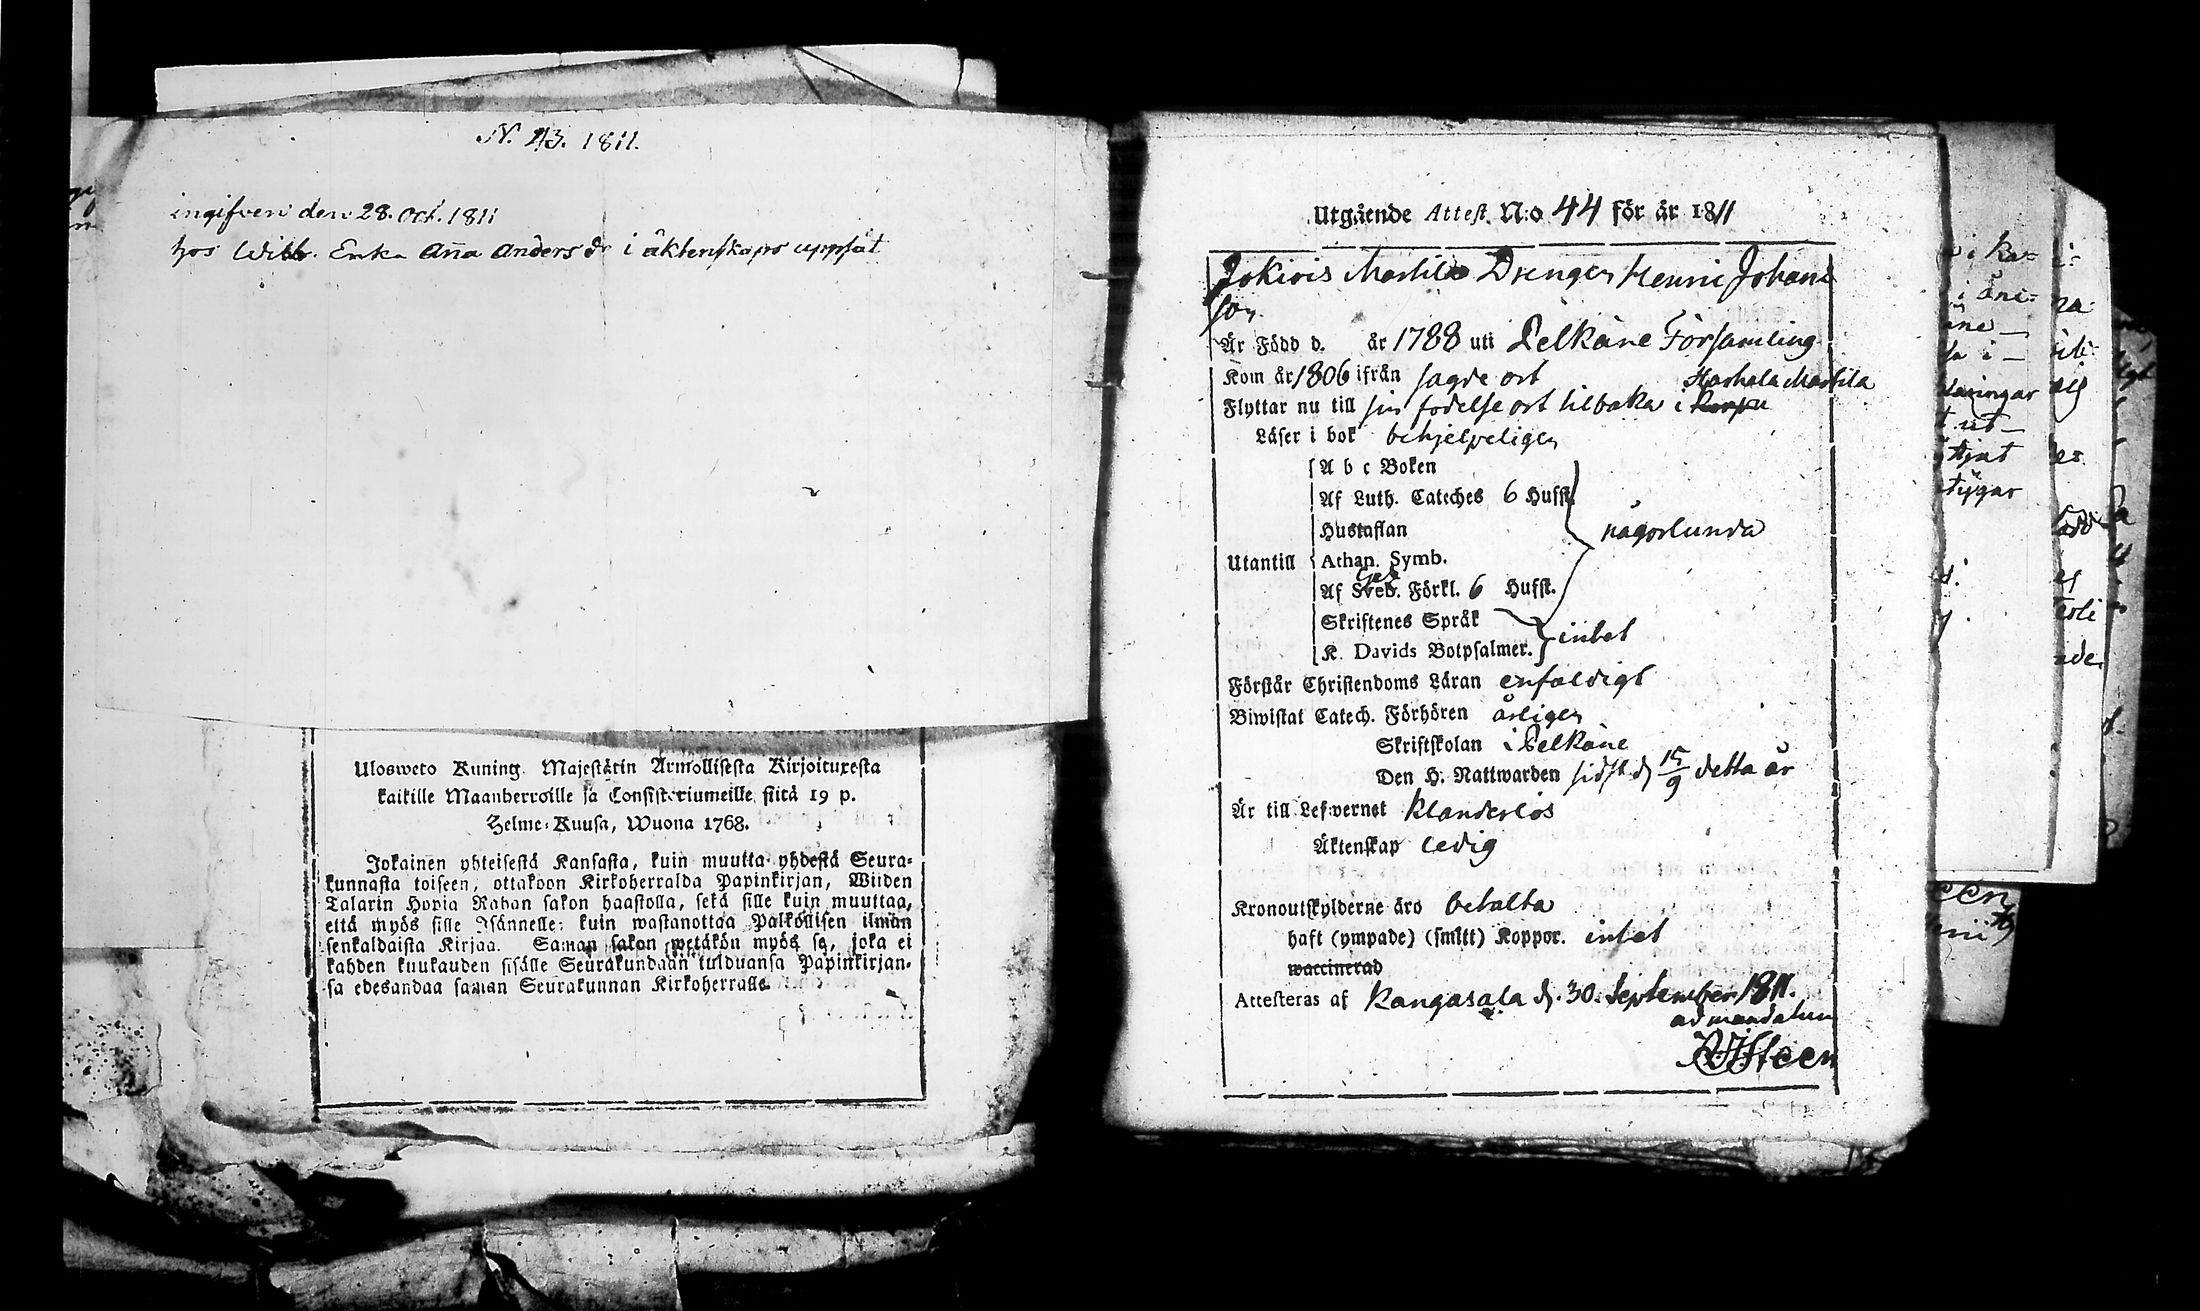 N. 113. 1811.
ingifven den 28. Oct. 1811
hos Enka Aña Anders dr i äktenskaps uppsåt
Ulosweto Kuning. Majestätin Armollisesta Kirjoituxesta
kaikille Maanherroille ja Consistoriumeille, siitä 19 p.
Helme-Kuusa, Wuona 1768.
Jokainen yhteisestä Kansasta, kuin muutta yhdestä Seura-
kunnasta toiseen, ottakoon Kirkoherralda Papinkirjan, Wiiden
Talarin Hopia Rahan sakon haastolla, sekä sille kuin muuttaa,
että myös sille Isännelle, kuin wastanottaa Palkollisen ilman
senkaldaista Kirjaa. Saman sakon wetäkön myös se, joka ei
kahden kuukauden sisälle Seurakundaan tulduansa Papinkirjan-
sa edesandaa saman Seurakunnan Kirkoherralle.
Utgående Attest. N:o 44 för år 1811
Jokiois Martila Drengen Henric Johans
son
Är Född d. år 1788 uti Pelkäne Församling
Kom år 1806 ifrån sagde ort
Harhala Martila
Flyttar nu till sin födelse ort tilbaka i
Läser i bok behjelpeligen
A b c Boken
Af Luth. Cateches 6 Hufst.
Hustaflan
någorlunda
Utantill Athan. Symb.
Af Sveb. Förkl. 6 Hufst.
Skriftenes Språk
K. Davids Botpsalmer. intet
Förstår Christendoms Läran enfaldigt
Biwistat Catech. Förhören årligen
Skriftskolan i Pelkäne
Den H. Nattwarden sidst d 15/9 detta år
Är till Lefvernet Klanderlös
Äktenskap ledig
Kronoutskylderne äro betalta
haft (ympade) (smitt) Koppor. intet
waccinerad
Attesteras af Kangasala d. 30. September 1811.
ad mandatum